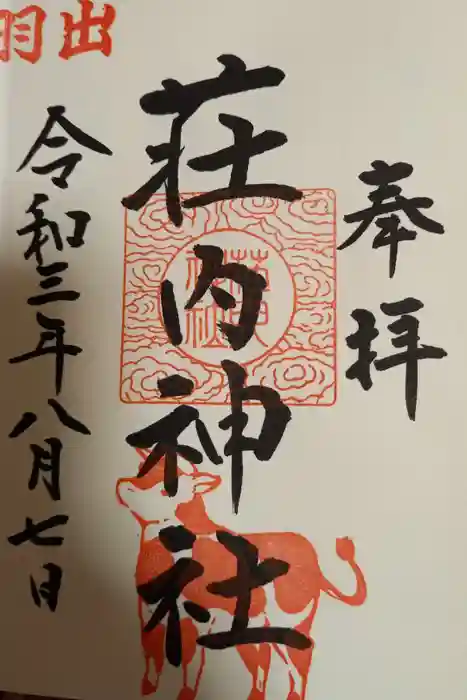 出羽
奉拝
荘内神社
令和三年八月七日